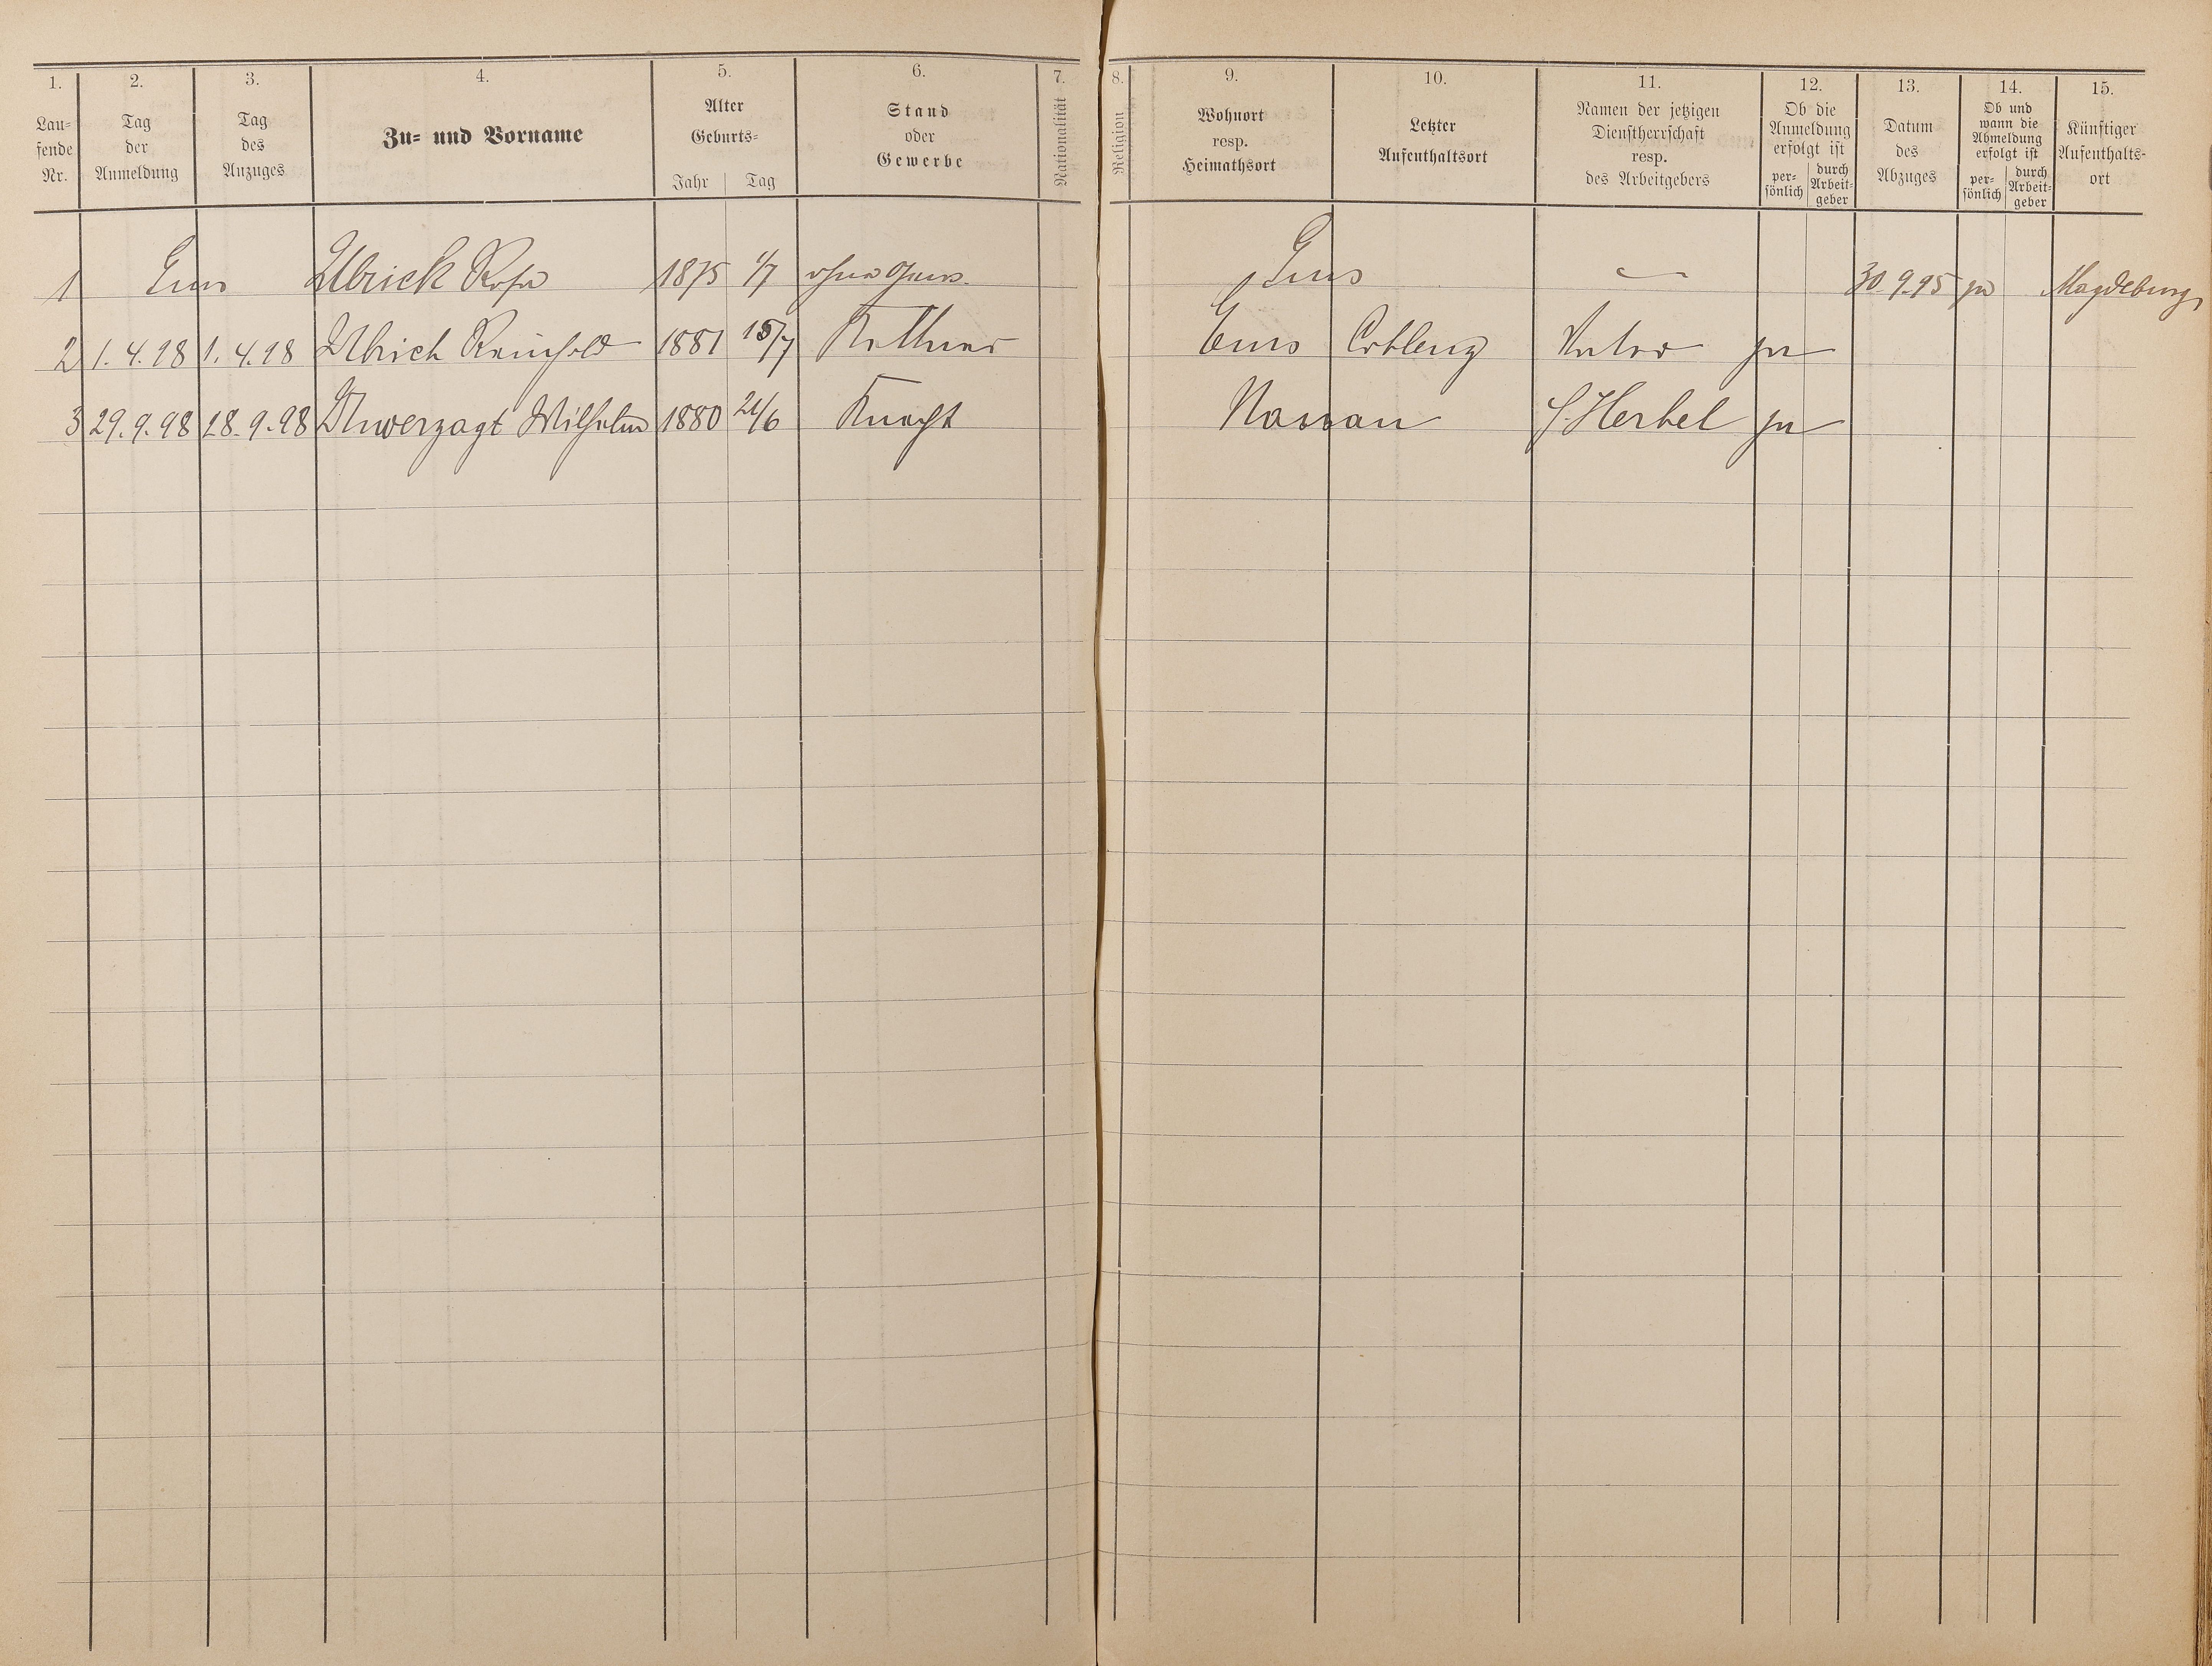 1.
Lau-
fende
Nr.
2.
Tag
der
Anmeldung
3.
Tag
des
Anzuges
4.
Zu- und Vorname
5.
Alter
Geburts-
Jahr Tag
6.
Stand
oder
Gewerbe
7.
Nationalität
8.
Religion
9.
Wohnort
resp.
Heimathsort
10.
Letzter
Aufenthaltsort
11.
Namen der jetzigen
Dienstherrschaft
resp.
des Arbeitgebers
12.
Ob die
Anmeldung
erfolgt ist
per-
sönlich
durch
Arbeit-
geber
13.
Datum
des
Abzuges
14.
Ob und
wann die
Abmeldung
erfolgt ist
per-
sönlich
durch
Arbeit-
geber
15.
Künftiger
Aufenthalts-
ort
1 Ems Ulrich Rosa 1875 1/7 ohne Gew. Ems — 30.9.95 ja Magdeburg
2 1.4.98 1.4.98 Ulrich Reinhold 1881 15/7 Kellner Ems Coblenz ja
3 29.9.98 28.9.98 Unverzagt Wilhelm 1880 21/6 Knecht Nassau Herbel ja